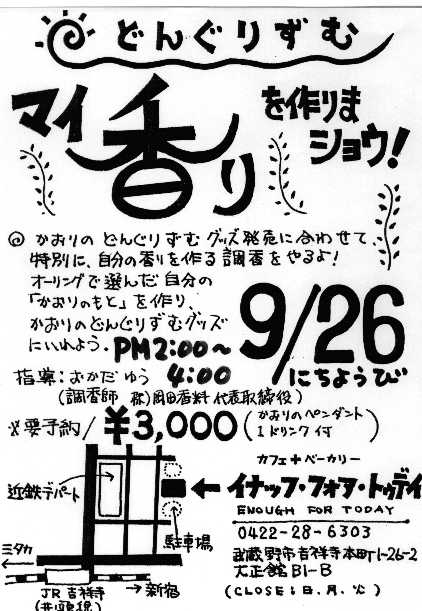 どんぐりずむ
マイ香り
を作りま
ショウ!
◎ かおりの どんぐりずむ グッズ発売に合わせて、
特別に、自分の香りを作る調香をやるよ!
オーリングで選んだ自分の
「かおりのもと」を作り、
かおりのどんぐりずむグッズ
にいれよう。PM2:00~
4:00
9/26
にちようび
指導:おかだ ゆう
(調香師 ㈱岡田香料 代表取締役)
※要予約/ ¥3,000 (かおりのペンダント
1ドリンク付)
近鉄デパート
駐車場
ミタカ
JR吉祥寺
(井の頭線)
→新宿
カフェ+ベーカリー
← イナッフ・フォア・トゥデイ
ENOUGH FOR TODAY
0422-28-6303
武蔵野市吉祥寺本町1-26-2
大正館B1-B
(CLOSE:日.月.火)